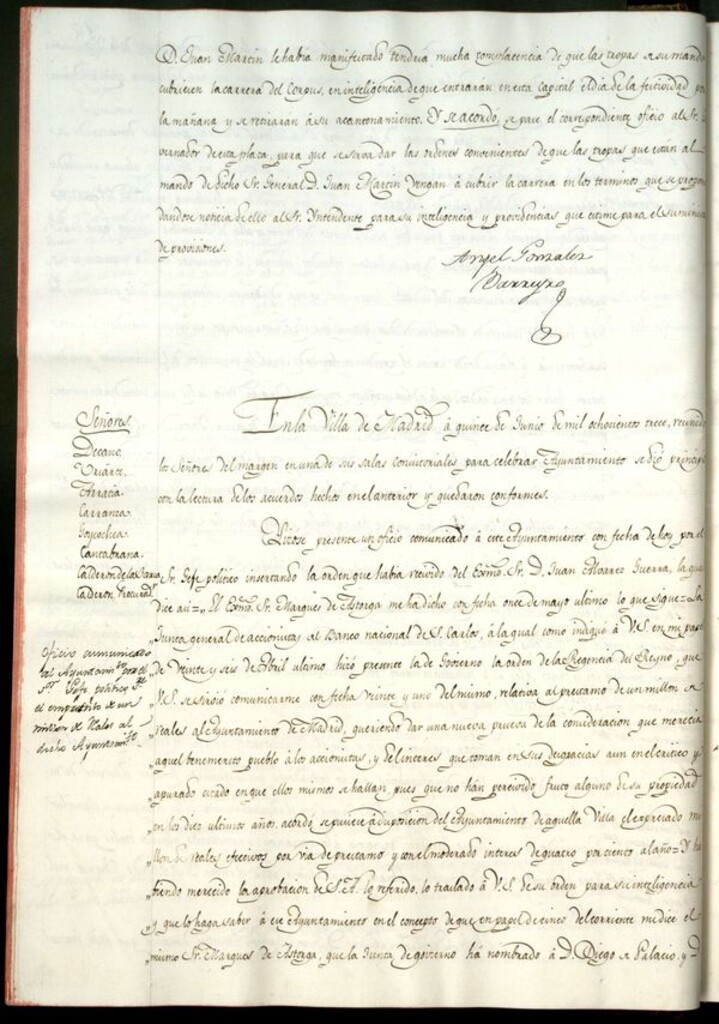 D. Juan Martin le habia manifestado tendria mucha complacencia de que las tropas de su mando
cubriesen la carrera del Corpus, en inteligencia de que entraran en esta capital el dia de la festividad por
la mañana y se retiraran á su acantonamiento. Y se acordó, se pase el correspondiente oficio al Sr. Go
vernador de esta plaza, para que se sirva dar las ordenes convenientes de que las tropas que están al
mando de dicho Sr. General D. Juan Martin vengan á cubrir la carrera en los terminos que se propone
dandose noticia de ello al Sr. Yntendente para su inteligencia y providencias que estime para el suminis
de provisiones.
Angel Gonzalez
Barreyro
En la Villa de Madrid á quince de Junio de mil ochocientos trece, reunido
los Señores del margen en una de sus salas consistoriales para celebrar Ayuntamiento se dió principio
con la lectura de los acuerdos hechos en el anterior y quedaron conformes.
Señores
Decano.
Uriarte.
Arratia.
Carranza.
Goycochea.
Cantabrana.
Calderon de la Barca
Calderon, Procurad.
Hizose presente un oficio comunicado á este Ayuntamiento con fecha de hoy por el
Sr. Gefe politico insertando la orden que habia recivido del Exmo. Sr. D. Juan Alvarez Guerra, la que
dice asi = El Exmo. Sr. Marques de Astorga me ha dicho con fecha once de mayo ultimo lo que sigue = La
Junta general de accionistas del Banco nacional de S. Carlos, á la qual como indiqué á V.S. en mi papel
de veinte y seis de Abril ultimo hizó presente la de Govierno la orden de la Regencia del Reyno, que
V.S. se sirvió comunicarme con fecha veinte y uno del mismo, relativa al prestamo de un millon de
reales al Ayuntamiento de Madrid, queriendo dar una nueva prueva de la consideracion que merecia
aquel benemerito pueblo á los accionistas, y del interes que toman en sus desgracias aun en el critico y
apurado estado en que ellos mismos se hallan, pues que no han percivido fruto alguno de su propiedad
en los diez ultimos años, acordó se pusiese á disposicion del Ayuntamiento de aquella Villa el expresado mi
llon de reales efectivos por via de prestamo y con el moderado interes de quatro por ciento al año = Y ha
biendo merecido la aprobacion de S.A. lo referido, lo traslado á V.S. de su orden para su inteligencia
y que lo haga saber á ese Ayuntamiento en el concepto de que en papel de cinco del corriente me dice el
mismo Sr. Marques de Astorga, que la Junta de govierno há nombrado á D. Diego de Palacio, y D
Oficio comunicado
al Ayuntamto por el
Sr. Gefe politico sre
el emprestito de un
millon de Reales al
dicho Ayuntamto